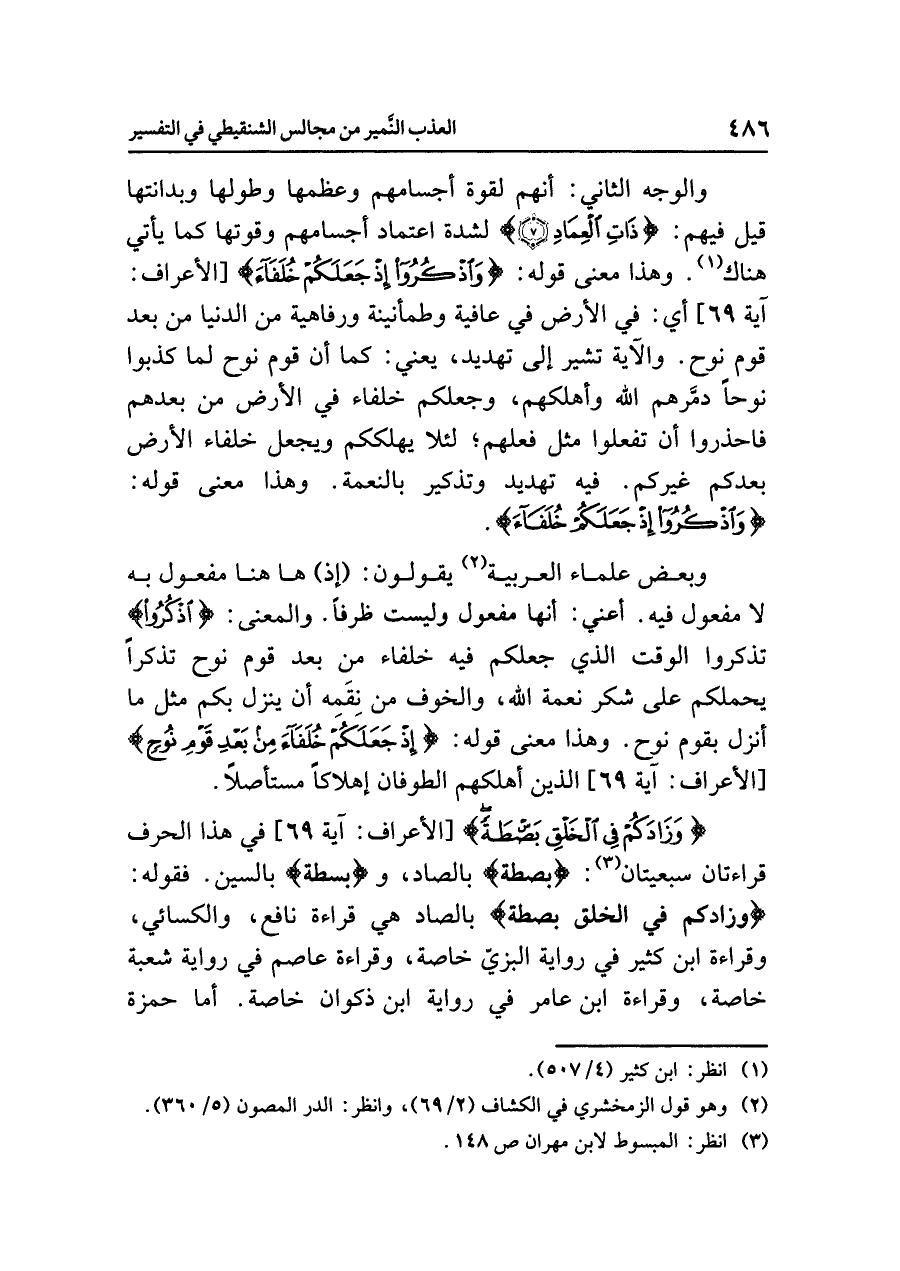 ٤٨٦ العذب النَّمير من مجالس الشنقيطي في التفسير
والوجه الثاني: أنهم لقوة أجسامهم وعظمها وطولها وبدانتها
قيل فيهم: ﴿ذَاتِ ٱلْعِمَادِ ٧﴾ لشدة اعتماد أجسامهم وقوتها كما يأتي
هناك(١). وهذا معنى قوله: ﴿وَٱذْكُرُوٓا۟ إِذْ جَعَلَكُمْ خُلَفَآءَ﴾ [الأعراف:
آية ٦٩] أي: في الأرض في عافية وطمأنينة ورفاهية من الدنيا من بعد
قوم نوح. والآية تشير إلى تهديد، يعني: كما أن قوم نوح لما كذبوا
نوحاً دمَّرهم الله وأهلكهم، وجعلكم خلفاء في الأرض من بعدهم
فاحذروا أن تفعلوا مثل فعلهم؛ لئلا يهلككم ويجعل خلفاء الأرض
بعدكم غيركم. فيه تهديد وتذكير بالنعمة. وهذا معنى قوله:
﴿وَٱذْكُرُوٓا۟ إِذْ جَعَلَكُمْ خُلَفَآءَ﴾.
وبعـض علمـاء العـربيـة(٢) يقـولـون: (إذ) هـا هنـا مفعـول بـه
لا مفعول فيه. أعني: أنها مفعول وليست ظرفاً. والمعنى: ﴿ٱذْكُرُوا۟﴾
تذكروا الوقت الذي جعلكم فيه خلفاء من بعد قوم نوح تذكراً
يحملكم على شكر نعمة الله، والخوف من نِقَمِه أن ينزل بكم مثل ما
أنزل بقوم نوح. وهذا معنى قوله: ﴿إِذْ جَعَلَكُمْ خُلَفَآءَ مِنۢ بَعْدِ قَوْمِ نُوحٍ﴾
[الأعراف: آية ٦٩] الذين أهلكهم الطوفان إهلاكاً مستأصلاً.
﴿وَزَادَكُمْ فِي ٱلْخَلْقِ بَصْۜطَةً ۖ﴾ [الأعراف: آية ٦٩] في هذا الحرف
قراءتان سبعيتان(٣): ﴿بصطة﴾ بالصاد، و ﴿بسطة﴾ بالسين. فقوله:
﴿وزادكم في الخلق بصطة﴾ بالصاد هي قراءة نافع، والكسائي،
وقراءة ابن كثير في رواية البزيّ خاصة، وقراءة عاصم في رواية شعبة
خاصة، وقراءة ابن عامر في رواية ابن ذكوان خاصة. أما حمزة
(١) انظر: ابن كثير (٤/٥٠٧).
(٢) وهو قول الزمخشري في الكشاف (٢/٦٩)، وانظر: الدر المصون (٥/٣٦٠).
(٣) انظر: المبسوط لابن مهران ص ١٤٨.